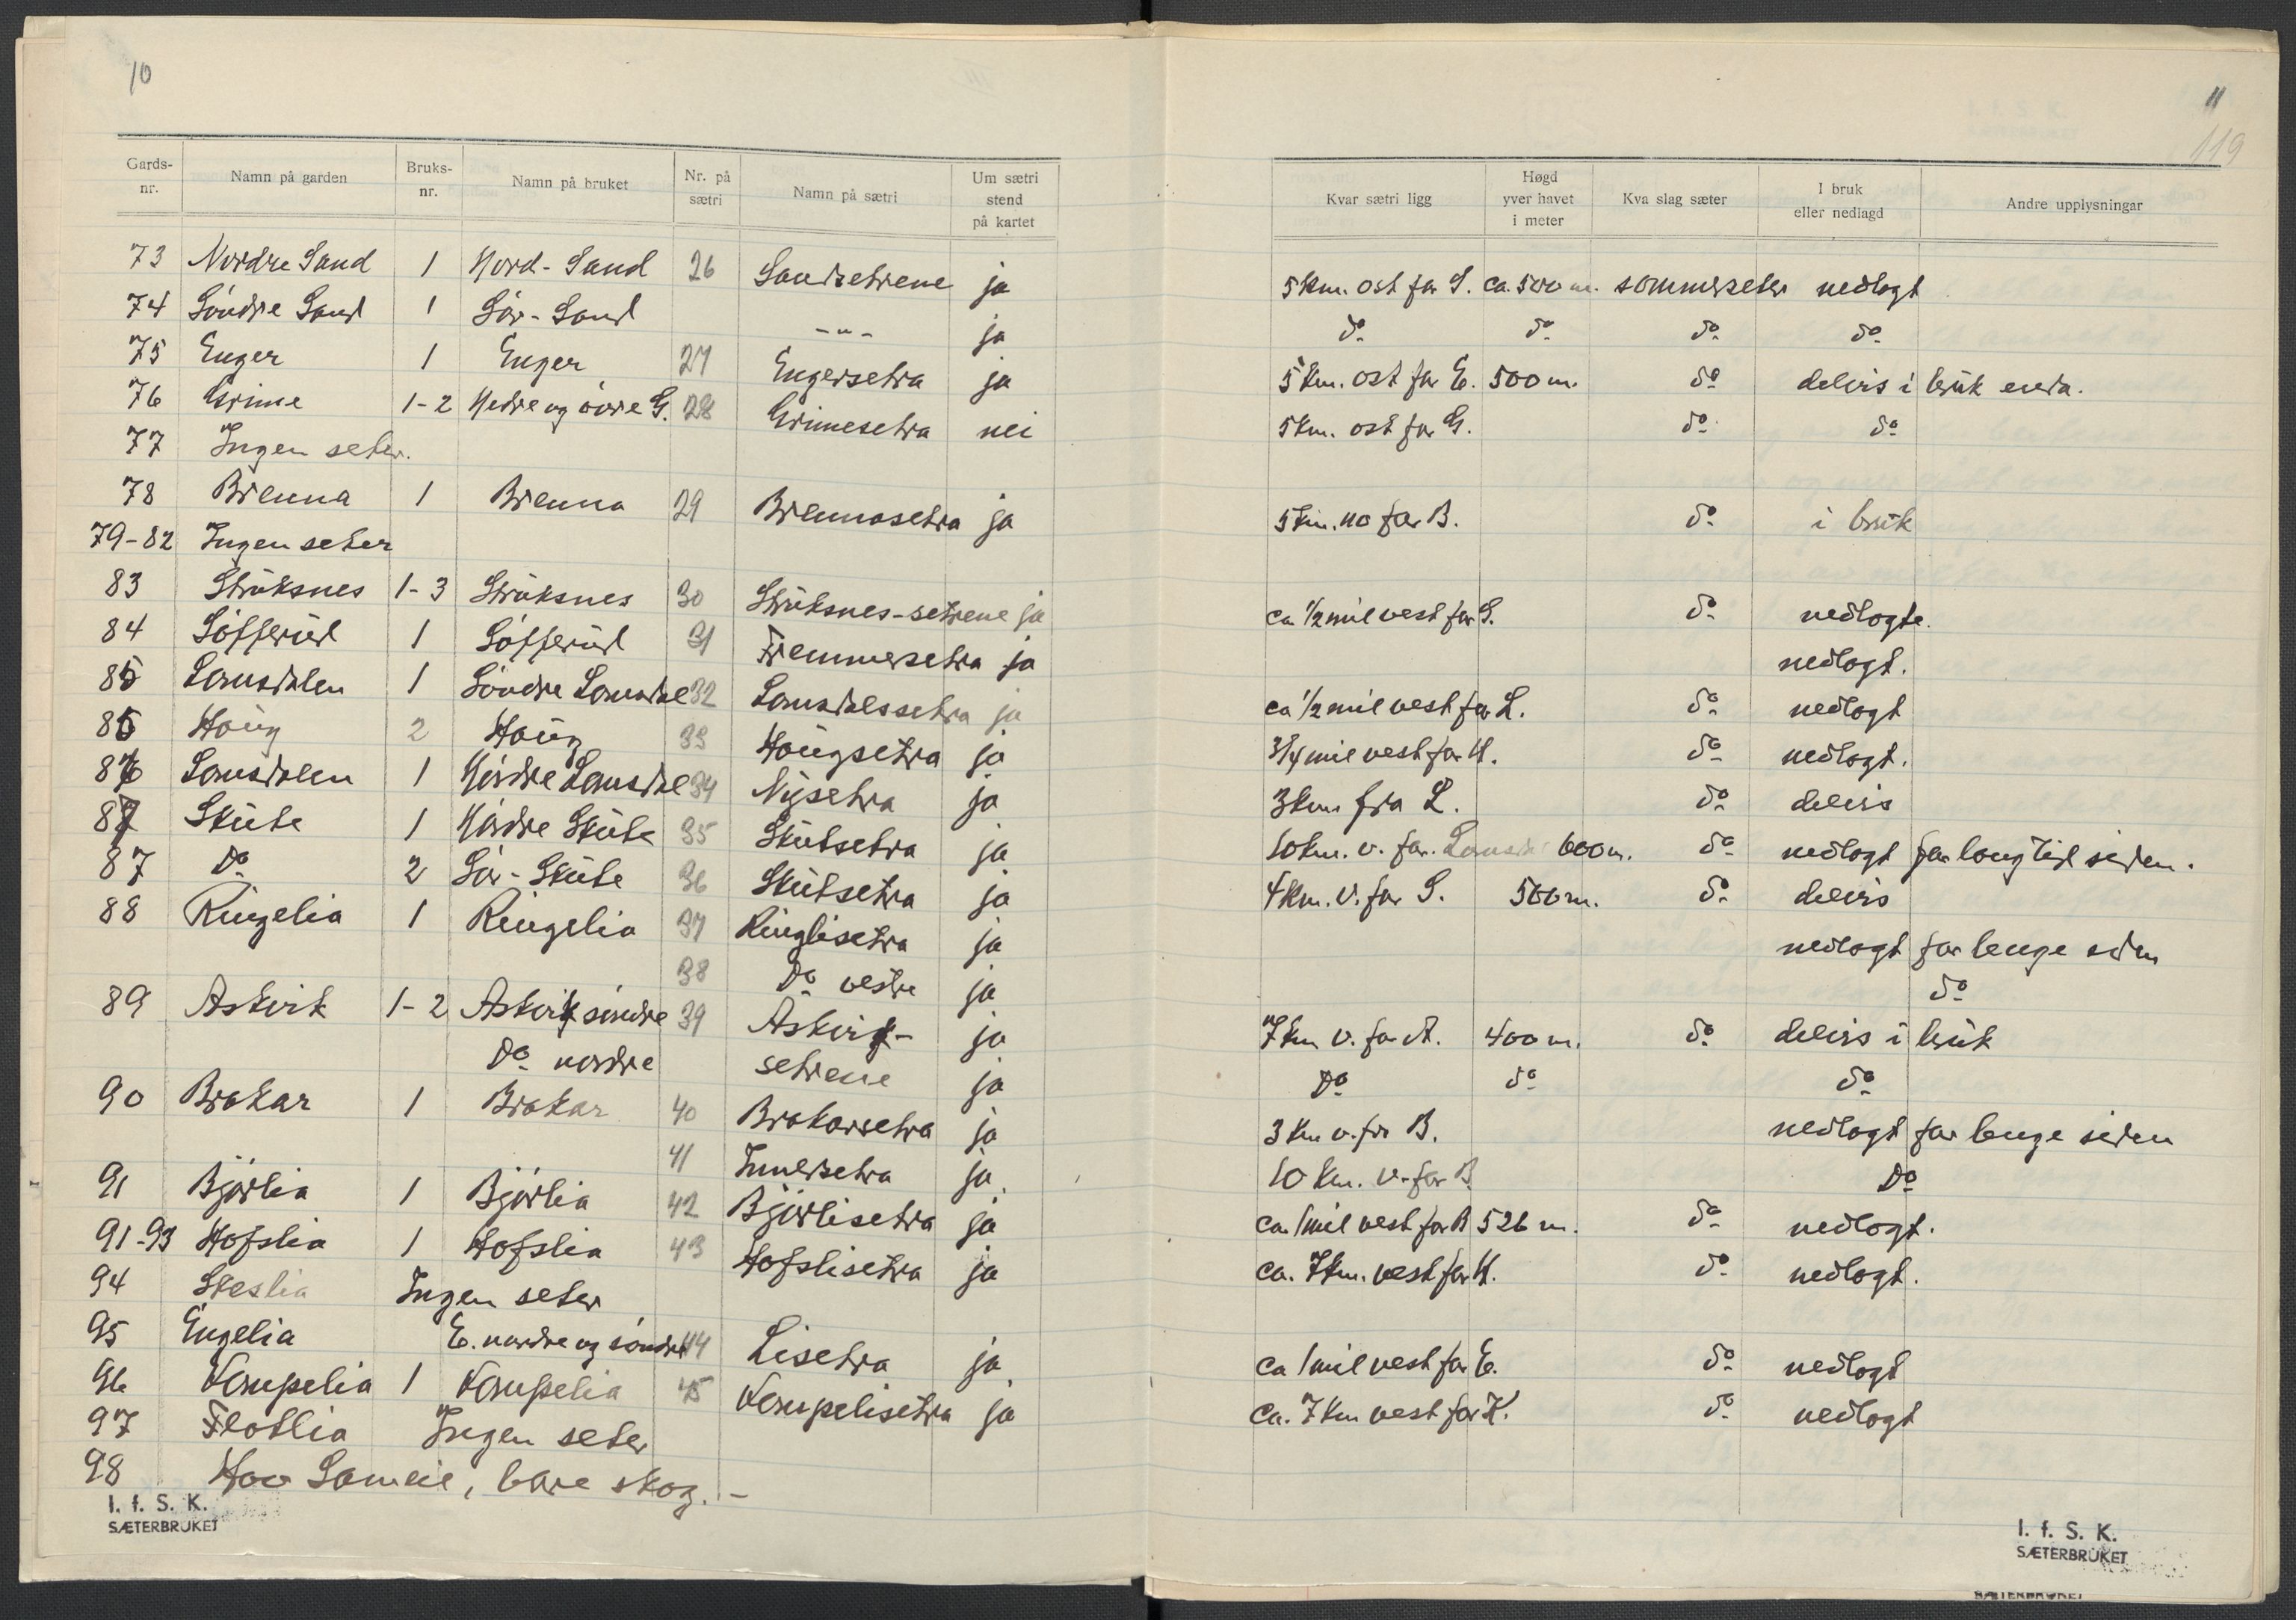 10
11
119
Gards-nr. Namn på garden Bruks-nr. Namn på bruket Nr. på sætri Namn på sætri Um sætri stend på kartet Kvar sætri ligg Høgd yver havet i meter Kva slag sæter I bruk eller nedlagd Andre upplysningar
73 Nordre Sand 1 Nord-Sand 26 Sandsetrene ja 5 km. ost for S. ca. 500 m. sommerseter nedlagt
74 Söndre Sand 1 Sör-Sand -"- ja do do do do
75 Enger 1 Enger 27 Engersetra ja 5 km. ost for E. 500 m. do delvis i bruk enda.
76 Grime 1-2 Nedre og övre G. 28 Grimesetra nei 5 km. ost for G. do do
77 Ingen seter.
78 Brenna 1 Brenna 29 Brennasetra ja 5 km. no for B. do i bruk
79-82 Ingen seter
83 Struksnes 1-3 Struksnes 30 Struksnes-setrene ja ca 1/2 mil vest for S. do nedlagte.
84 Söfferud 1 Söfferud 31 Fremmersetra ja nedlagt.
85 Lamsdalen 1 Söndre Lamsdal 32 Lamsdalssetra ja ca 1/2 mil vest for L. do nedlagt
86 Haug 2 Haug 33 Haugsetra ja 3/4 mil vest for H. do nedlagt.
86 Lamsdalen 1 Nördre Lamsdal 34 Nysetra ja 3 km fra L. do delvis
87 Skute 1 Nördre Skute 35 Skutsetra ja 10 km. v. for. 600 m. do nedlagt for lang tid siden.
87 Do 2 Sör-Skute 36 Skutsetra ja 4 km. v. for S. 500 m. do delvis
88 Ringelia 1 Ringelia 37 Ringlisetra ja nedlagt for lenge siden
38 Do vestre ja do
89 Askvik 1-2 Askvik söndre 39 Askvik- ja 7 km v. for A. 400 m. do delvis i bruk
Do nordre setrene ja Do do do
90 Brakar 1 Brakar 40 Brakarsetra ja 3 km v. for B. nedlagt for lenge siden
41 Innersetra ja. 10 km. v. for B. Do
91 Björlia 1 Björlia 42 Björlisetra ja ca. 1 mil vest for B 526 m. do nedlagt.
91-93 Hofslia 1 Hofslia 43 Hofslisetra ja ca. 7 km. vest for H. do nedlagt.
94 Ingen seter
95 Engelia E. nordre og söndre 44 Lisetra ja ca 1 mil vest for E. do nedlagt
96 Kampelia 1 Kampelia 45 Kampelisetra ja ca. 7 km vest for K. do nedlagt
97 Flatlia Ingen seter
98 Hov Sameie, bare skog. -
I. f. S. K.
SÆTERBRUKET
I. f. S. K.
SÆTERBRUKET